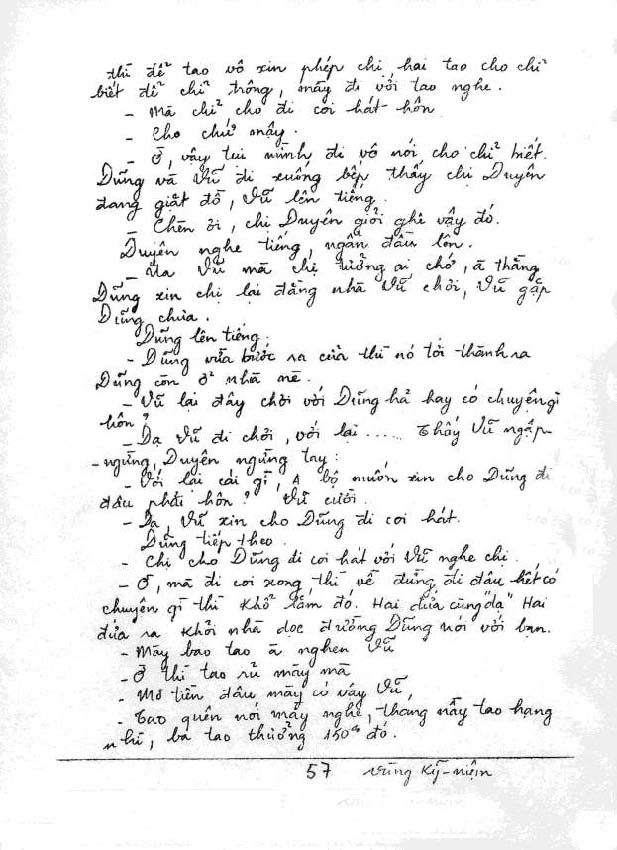 thì để tao vô xin phép chị hai tao cho chỉ
biết để chỉ trông, mầy đi với tao nghe.
- Mà chỉ cho đi coi hát hôn
- Cho chứ mậy.
- Ờ, vậy tụi mình đi vô nói cho chỉ biết.
Dũng và Vũ đi xuống bếp thấy chị Duyên
đang giặt đồ, Vũ lên tiếng.
- Chèn ôi, chị Duyên giỏi ghê vậy đó.
Duyên nghe tiếng, ngẩn đầu lên.
- Ủa Vũ mà chị tưởng ai chớ, à thằng
Dũng xin chị lại đằng nhà Vũ chơi, Vũ gặp
Dũng chưa.
Dũng lên tiếng:
- Dũng vừa bước ra cửa thì nó tới thành ra
Dũng còn ở nhà nè.
- Vũ lại đây chơi với Dũng hả hay có chuyện gì
hôn?
- Dạ Vũ đi chơi, với lại ..... Thấy Vũ ngập-
-ngừng, Duyên ngừng tay:
- Với lại cái gì, A bộ muốn xin cho Dũng đi
đâu phải hôn? Vũ cười.
- Dạ, Vũ xin cho Dũng đi coi hát.
Dũng tiếp theo.
- Chị cho Dũng đi coi hát với Vũ nghe chị.
- Ờ, mà đi coi xong, thì về đừng đi đâu hết có
chuyện gì thì khổ lắm đó. Hai đứa cùng "dạ" Hai
đứa ra khỏi nhà dọc đường Dũng nói với bạn.
- Mầy bao tao à nghen Vũ
- Ờ thì tao rủ mày mà
- Mà tiền đâu mầy có vậy Vũ,
- Tao quên nói mầy nghe, tháng nầy tao hạng
nhì, ba tao thưởng 150đ đó.
57 Vùng Kỹ-niệm